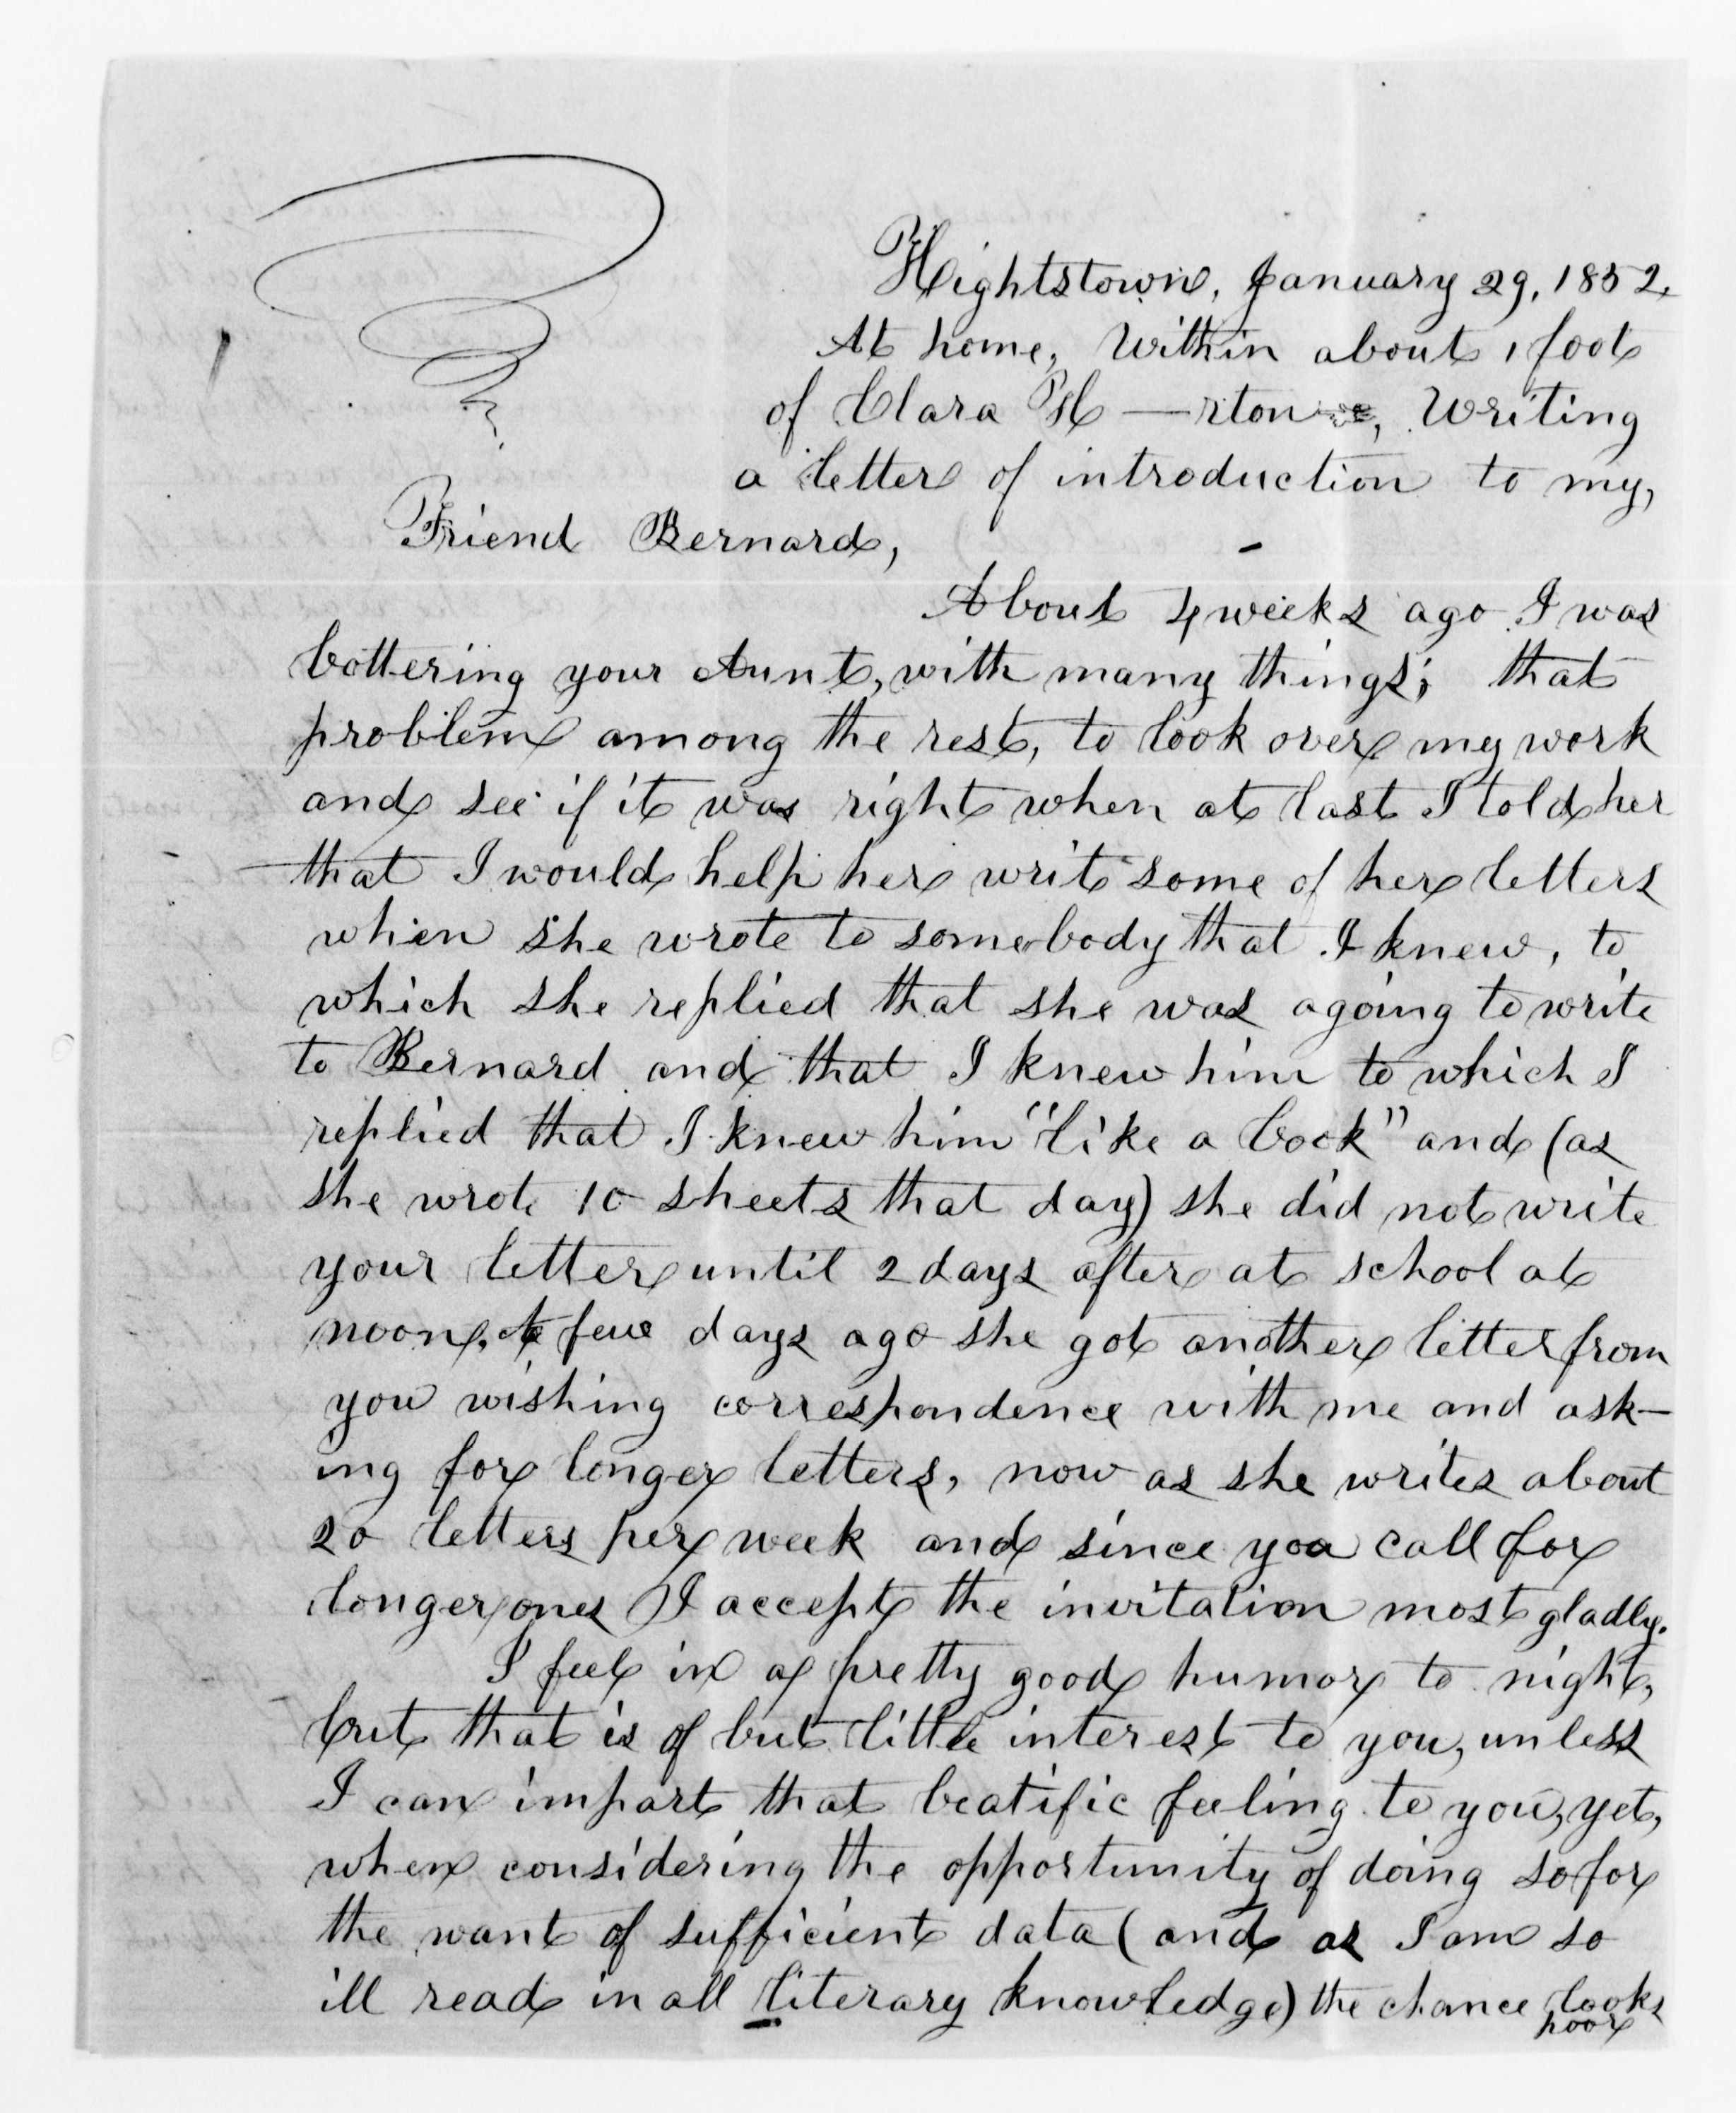 Hightstown, January 29, 1852,
At home, Within about 1 foot
of Clara H—rton, Writing
a letter of introduction to my,
Friend Bernard,
About 4 weeks ago I was
bottering your Aunt, with many things; that
problem among the rest, to look over my work
and see if it was right when at last I told her
that I would help her write some of her letters
when she wrote to somebody that I knew, to
which she replied that she was agoing to write
to Bernard and that I knew him to which I
replied that I knew him "like a book" and (as
she wrote 10 sheets that day) she did not write
your letter until 2 days after at school at
noon, A few days ago she got another letter from
you wishing correspondence with me and ask-
ing for longer letters, now as she writes about
20 letters per week and since you call for
longer ones I accept the invitation most gladly.
I feel in a pretty good humor to night,
but that is of but little interest to you, unless
I can impart that beatific feeling to you, yet,
when considering the opportunity of doing so for
the want of sufficient data (and as I am so
ill read in all literary knowledge) the chance looks
poor